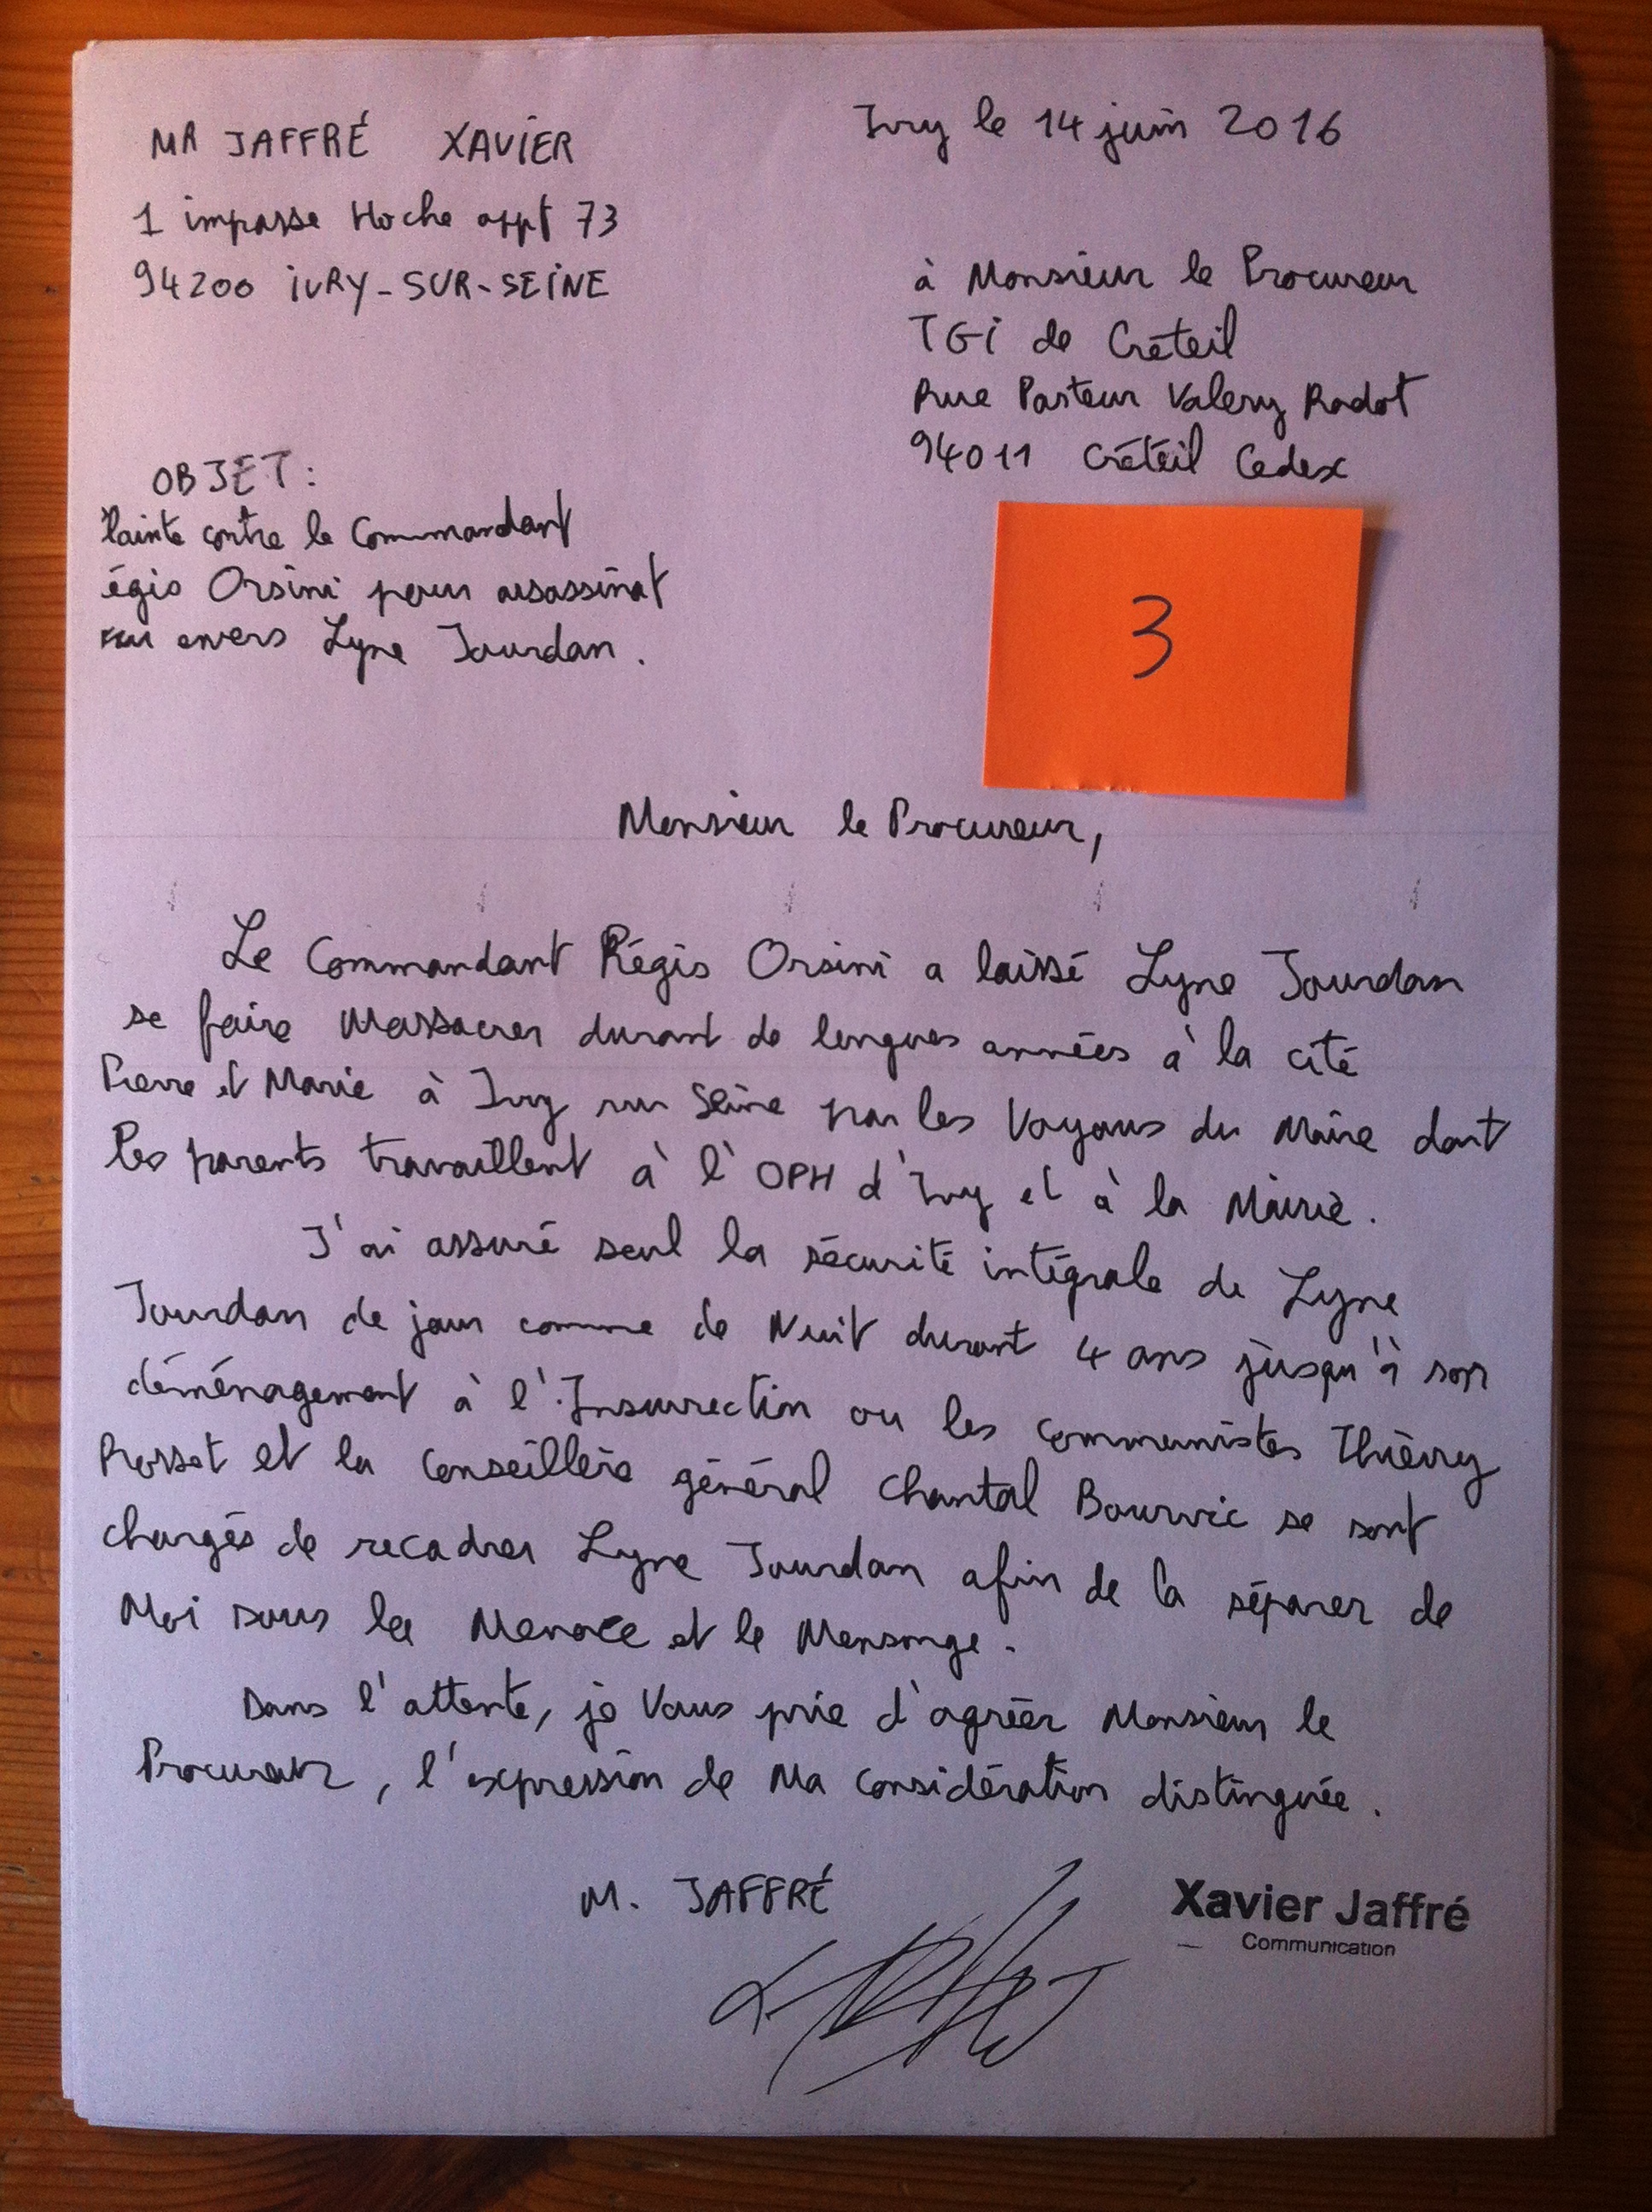 MR JAFFRÉ XAVIER
1 impasse Hoche appt 73
94200 IVRY-SUR-SEINE
Ivry le 14 juin 2016
à Monsieur le Procureur
TGI de Créteil
Rue Pasteur Valery Radot
94011 Créteil Cedex
OBJET:
Plainte contre le Commandant
égis Orsini pour assassinat
envers Lyne Jourdan.
3
Monsieur le Procureur,
Le Commandant Régis Orsini a laissé Lyne Jourdan
se faire Massacrer durant de longues années à la cité
Pierre et Marie à Ivry sur Seine par les Voyous du Maire dont
les parents travaillent à l'OPH d'Ivry et à la Mairie.
J'ai assuré seul la sécurité intégrale de Lyne
Jourdan de jour comme de Nuit durant 4 ans jusqu'à son
déménagement à l'Insurrection ou les communistes Thièrry
et la Conseillère général Chantal Bourvic se sont
chargés de recadrer Lyne Jourdan afin de la séparer de
Moi sous la Menace et le Mensonge.
Dans l'attente, je Vous prie d'agréer Monsieur le
Procureur, l'expression de Ma considération distinguée.
M. JAFFRÉ
Xavier Jaffré
Communication